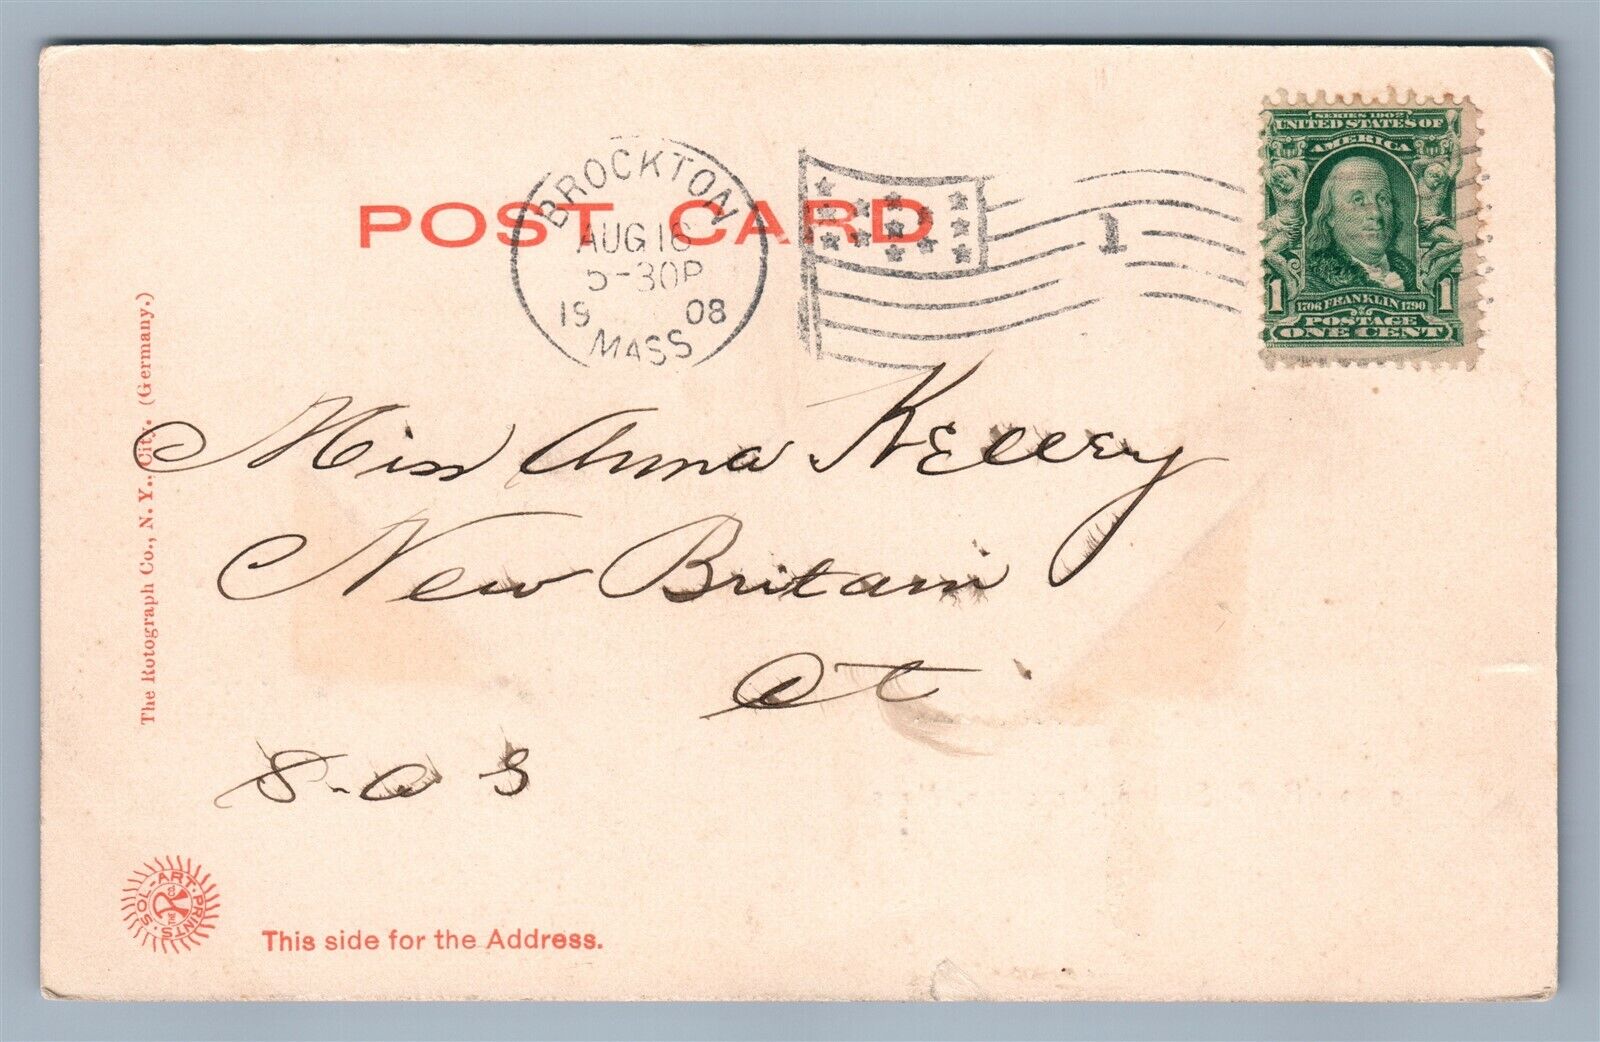 POST CARD
BROCKTON
AUG 16
5-30P
19 08
MASS
1
SERIES 1902
UNITED STATES OF
AMERICA
1 1706 FRANKLIN 1790 1
POSTAGE
ONE CENT
The Rotograph Co., N. Y. City. (Germany.)
Miss Anna Kelley
New Britain
Ct
SOL-ART-PRINTS
THE
This side for the Address.